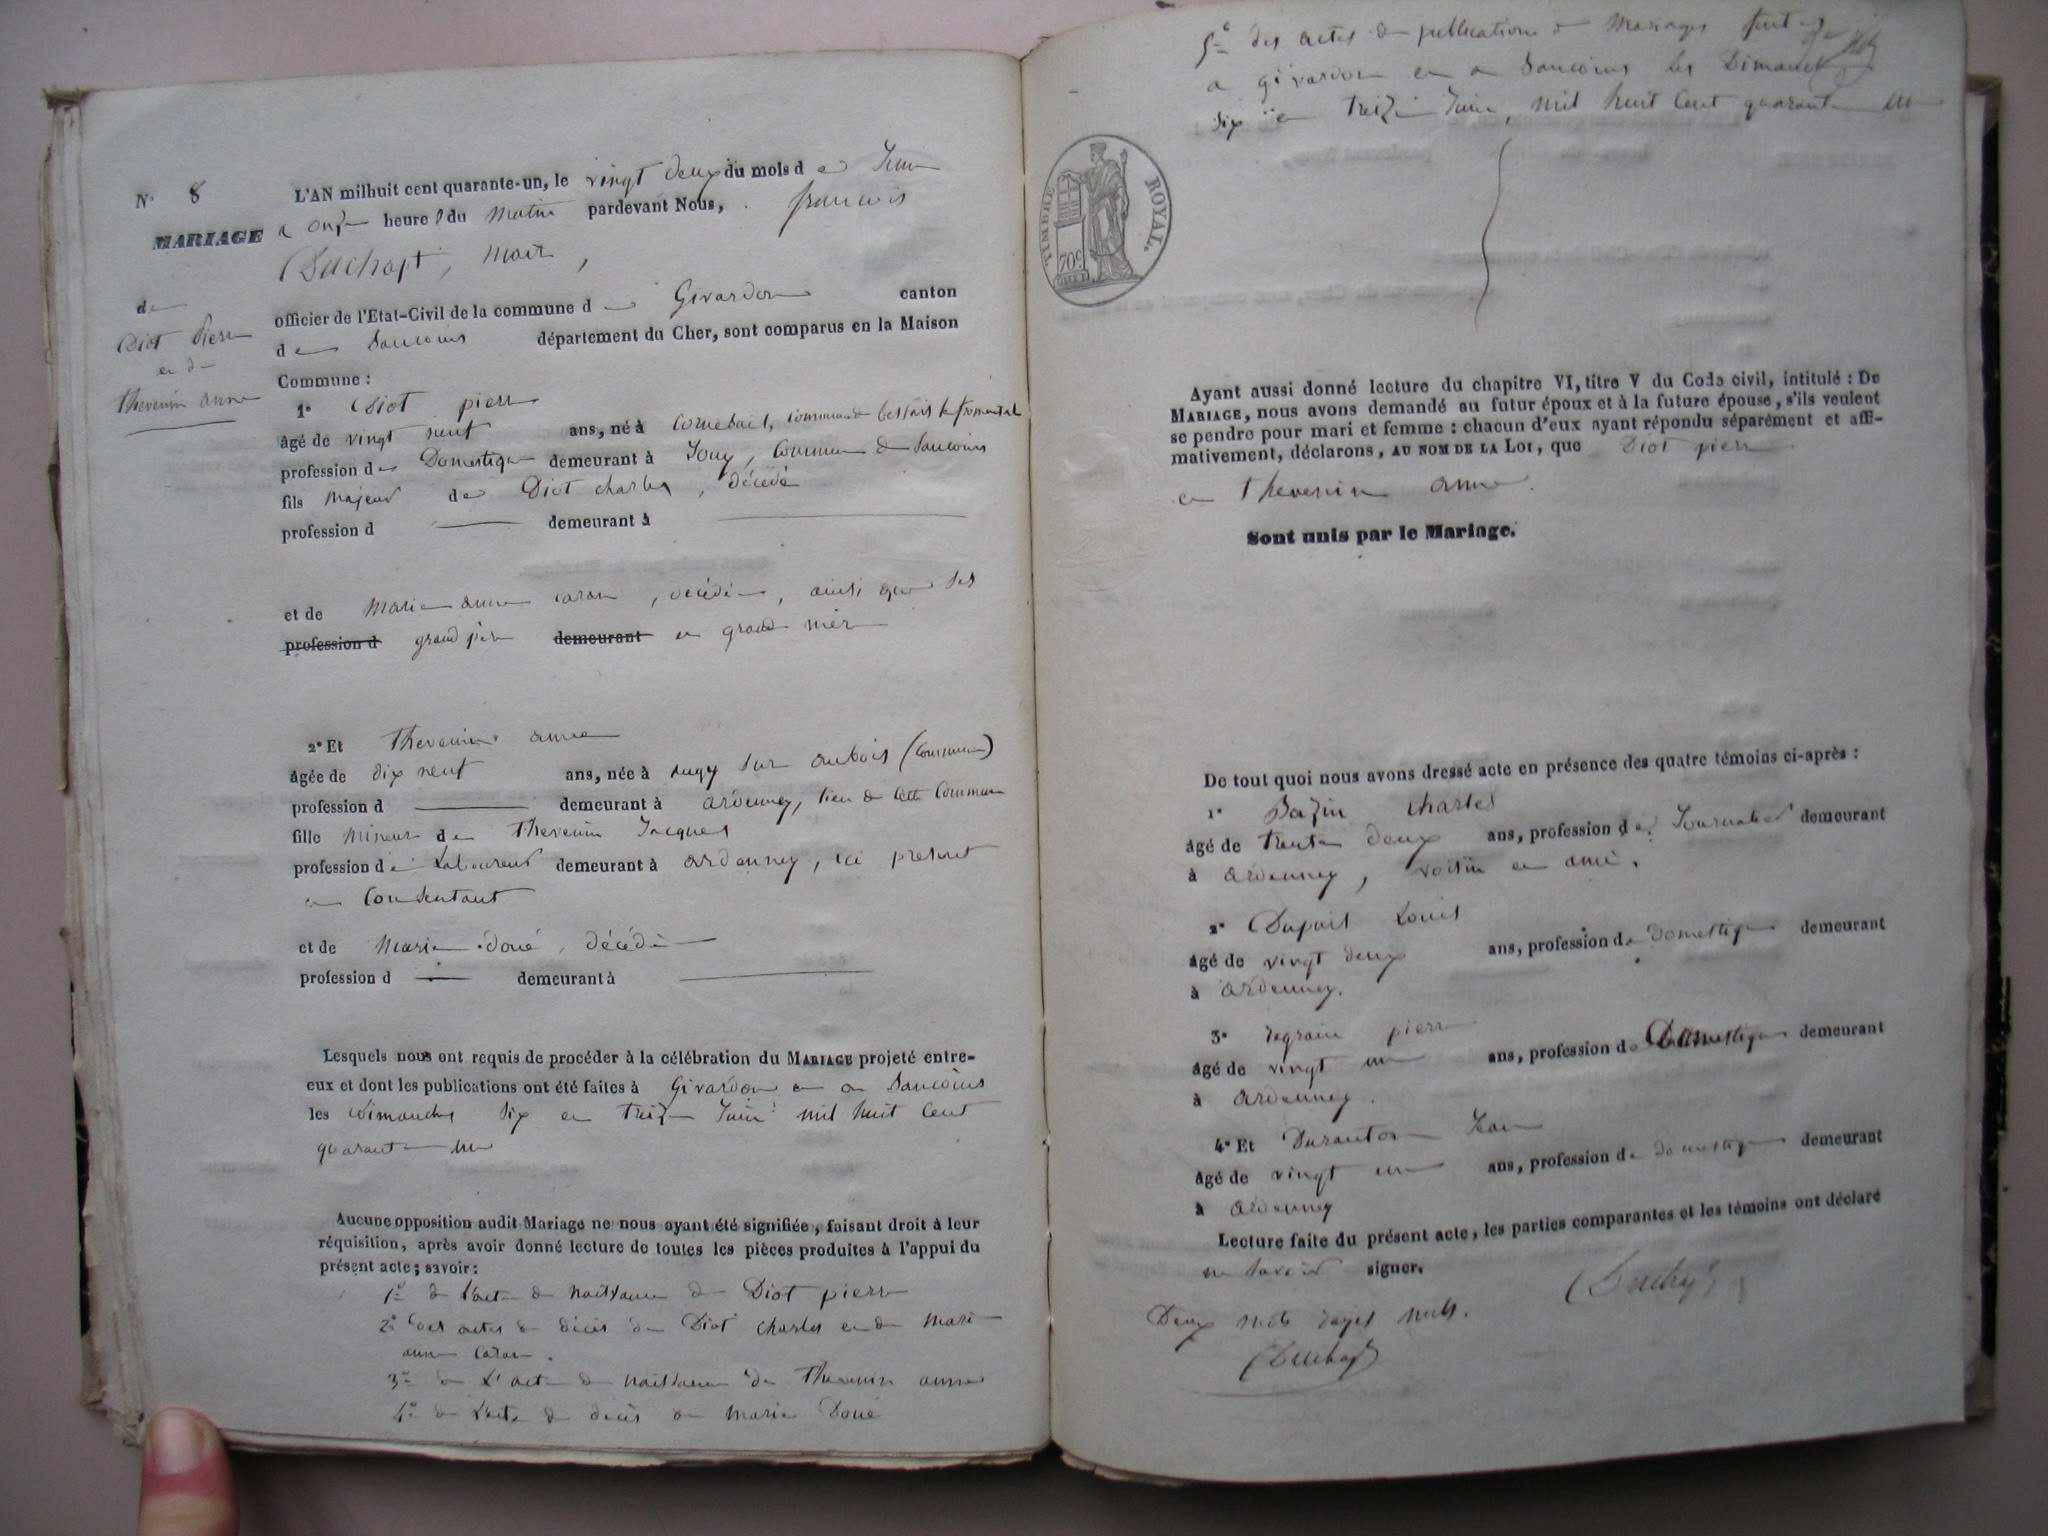 N° 8
MARIAGE
de
Diot Pierre
et de
Thevenin anne
L'AN milhuit cent quarante-un, le vingt deux du mois de Juin
à onze heures du matin pardevant Nous, françois
Duchapt, maire,
officier de l'Etat-Civil de la commune de Givardon canton
de Sancoins département du Cher, sont comparus en la Maison
Commune :
1° Diot pierre
âgé de vingt neuf ans, né à Cornebait, commune de bessais le fromental
profession de Domestique demeurant à Jouy, Commune de Sancoins
fils majeur de Diot charles, décédé
profession d demeurant à
et de Marie anne caron, décédée, ainsi que ses
profession d grand père demeurant et grand mère
2° Et Thevenin anne
âgée de dix neuf ans, née à augy sur aubois (Commune)
profession d demeurant à ardenney, lieu de cette Commune
fille mineure de Thevenin Jacques
profession de Laboureur demeurant à ardenney, ici présent
et Consentant
et de Marie doué, décédée
profession d demeurant à
Lesquels nous ont requis de procéder à la célébration du MARIAGE projeté entre-
eux et dont les publications ont été faites à Givardon et à Sancoins
les dimanches six et treize Juin mil huit Cent
quarante un
Aucune opposition audit Mariage ne nous ayant été signifiée, faisant droit à leur
réquisition, après avoir donné lecture de toutes les pièces produites à l'appui du
présent acte; savoir :
1° de l'acte de naissance de Diot pierre
2° des actes de décès de Diot charles et de marie
anne caron.
3° de L'acte de naissance de Thevenin anne
4° de L'acte de décès de marie Doué
5° des actes de publications de Mariages faites
a givardon et a Sancoins les Dimanches
six et treize Juin, mil huit Cent quarante un
TIMBRE ROYAL.
70c
Ayant aussi donné lecture du chapitre VI, titre V du Code civil, intitulé : DU
MARIAGE, nous avons demandé au futur époux et à la future épouse, s'ils veulent
se pendre pour mari et femme : chacun d'eux ayant répondu séparément et affi-
mativement, déclarons, AU NOM DE LA LOI, que Diot pierre
et Thevenin anne.
Sont unis par le Mariage.
De tout quoi nous avons dressé acte en présence des quatre témoins ci-après :
1° Bazin charles
âgé de trente deux ans, profession de Journalier demeurant
à ardenney, voisin et ami.
2° Dupuis Louis
âgé de vingt deux ans, profession de domestique demeurant
à ardenney.
3° Legrain pierre
âgé de vingt un ans, profession de Domestique demeurant
à ardenney.
4° Et Duranton Jean
âgé de vingt un ans, profession de domestique demeurant
à ardenney
Lecture faite du présent acte, les parties comparantes et les témoins ont déclaré
ne savoir signer.
Duchapt
Deux mots rayés nuls.
Duchapt